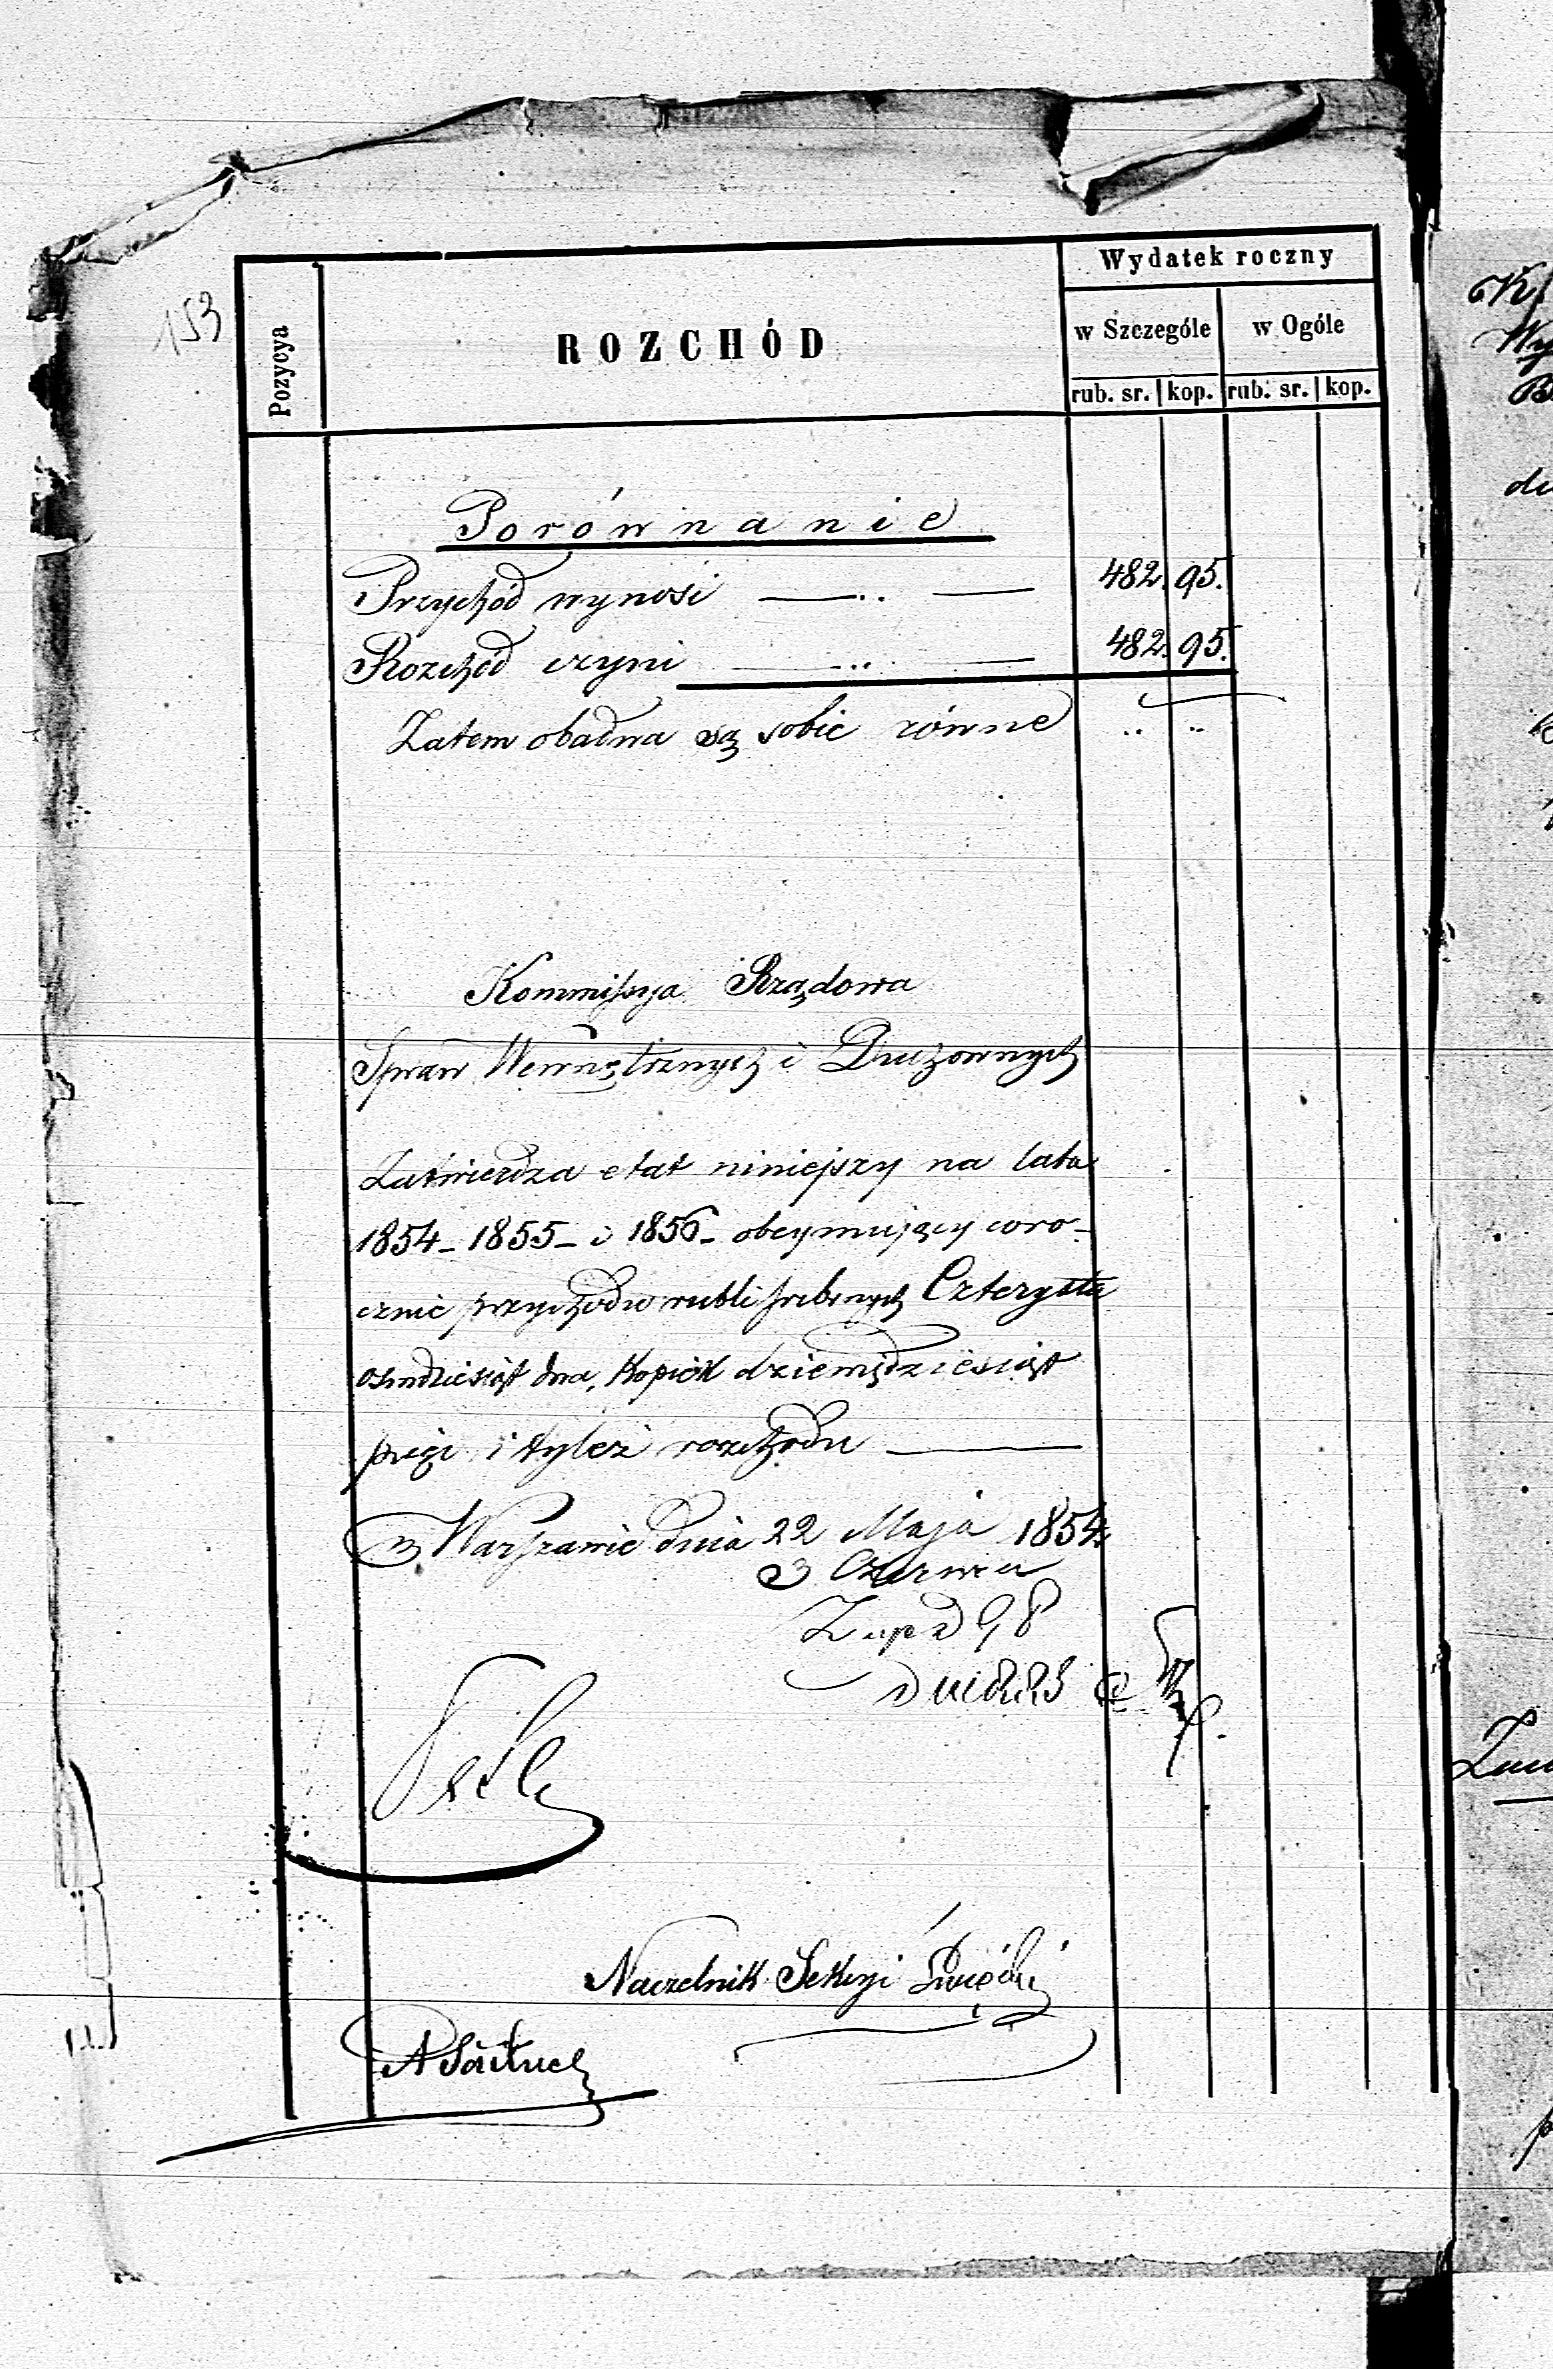 153
Wydatek roczny
Pozycya
ROZCHÓD
w Szczególe
w Ogóle
rub. sr. kop. rub. sr. kop.
Porównanie
Przychód wynosi 482. 95.
Rozchód czyni 482. 95.
Zatem obadwa są sobie równe
Kommissya Rządowa
Spraw Wewnętrznych i Duchownych
Zatwierdza etat niniejszy na lata
1854 - 1855 - i 1856 - obejmujący coro-
cznie przychodu rubli srebrnych Czterysta
osmdziesiąt dwa, kopiek dziewięćdziesiąt
pięć i tyleż rozchodu
w Warszawie dnia 22 Maja 1854
3 Czerwca
Naczelnik Sekcyi